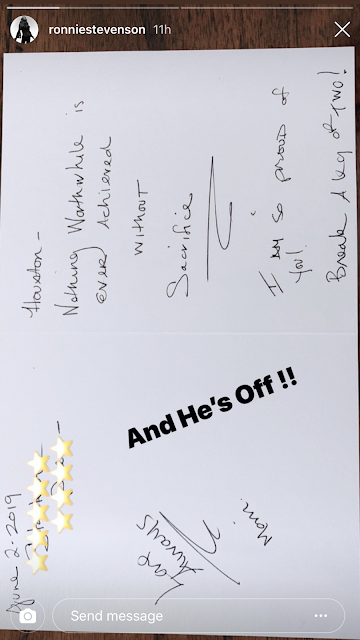 ronniestevenson 11h
June 2-2019
Houston -
Nothing Worthwhile is
ever achieved
without
Sacrifice
I am so proud of
you!
Break A Leg or Two!
Love
Always
Mom
And He's Off !!
Send message